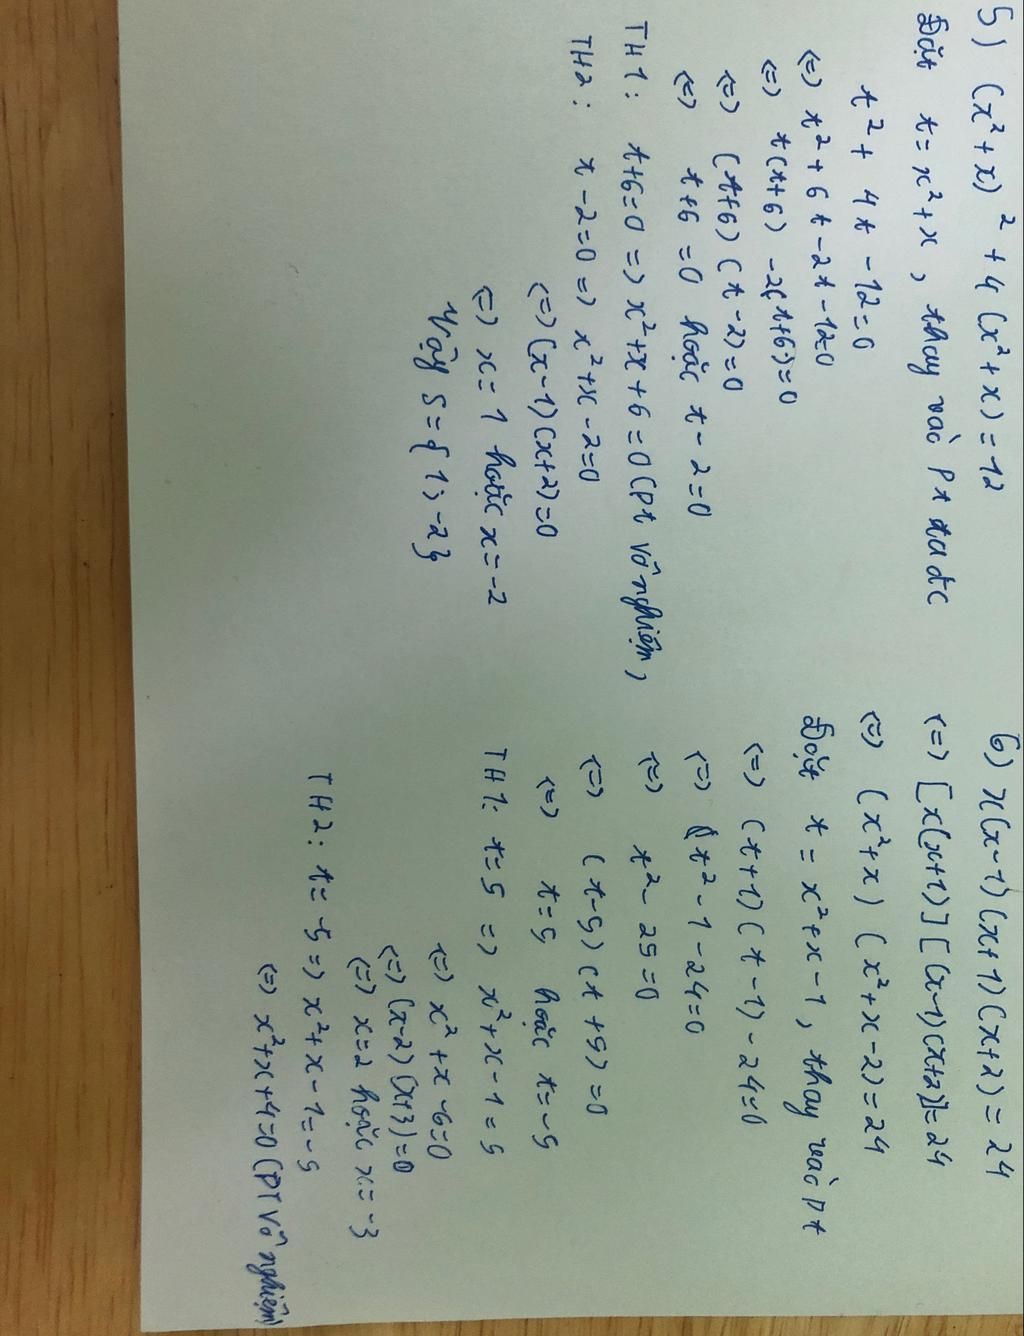 5) (x²+x)² + 4(x²+x) = 12
Đặt t = x²+x, thay vào Pt đa đc
t² + 4t - 12 = 0
<=> t² + 6t - 2t - 12=0
<=> t(t+6) - 2(t+6) = 0
<=> (t+6)(t-2)=0
<=> t+6 = 0 hoặc t-2=0
TH1: t+6=0 => x²+x+6=0 (Pt vô nghiệm)
TH2: t-2=0 => x²+x-2=0
<=> (x-1)(x+2)=0
<=> x=1 hoặc x=-2
Vậy S={1;-2}
6) x(x-1)(x+1)(x+2) = 24
<=> [x(x+1)][(x-1)(x+2)]=24
<=> (x²+x)(x²+x-2)=24
Đặt t = x²+x-1, thay vào Pt
<=> (t+1)(t-1) - 24=0
<=> t²-1-24=0
<=> t²-25=0
<=> (t-5)(t+5)=0
<=> t=5 hoặc t=-5
TH1: t=5 => x²+x-1=5
<=> x²+x-6=0
<=> (x-2)(x+3)=0
<=> x=2 hoặc x=-3
TH2: t=-5 => x²+x-1=-5
<=> x²+x+4=0 (PT vô nghiệm)